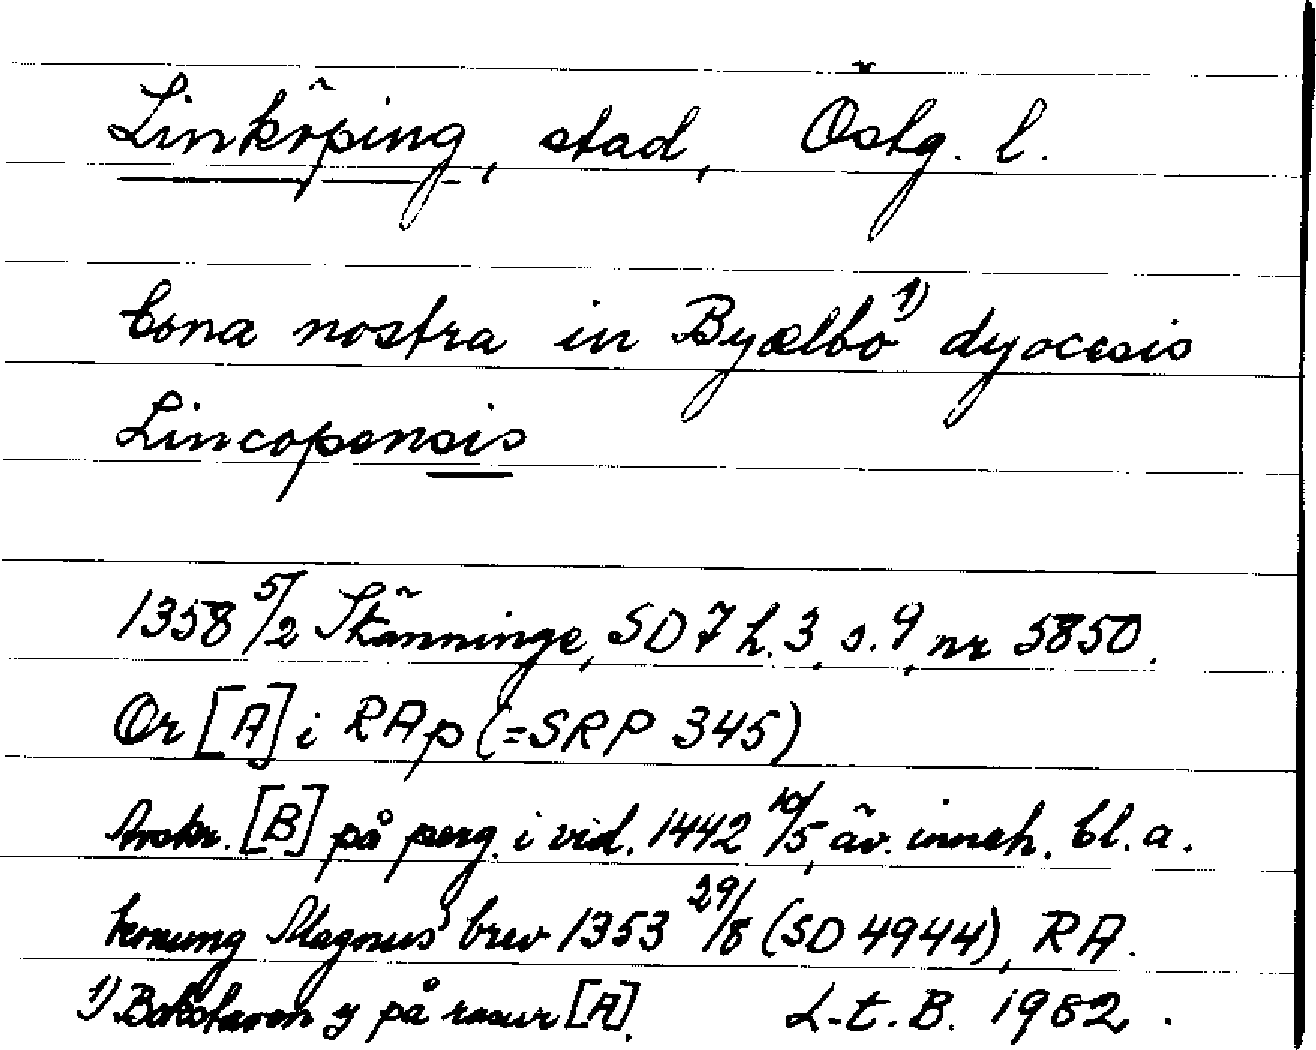 Linköping, stad, Östg. l.
bona nostra in Byælbo 1) dyocesis
Lincopensis
1358 5/2 Skänninge, SD 7 h. 3, s. 9, nr 5850.
Or [A] i RAp (=SRP 345)
Avskr. [B] på perg. i vid. 1442 10/5, äv. inneh. bl. a.
konung Magnus' brev 1353 29/8 (SD 4944), RA.
1) Bokstaven y på rasur [A]. L.t.B. 1982.